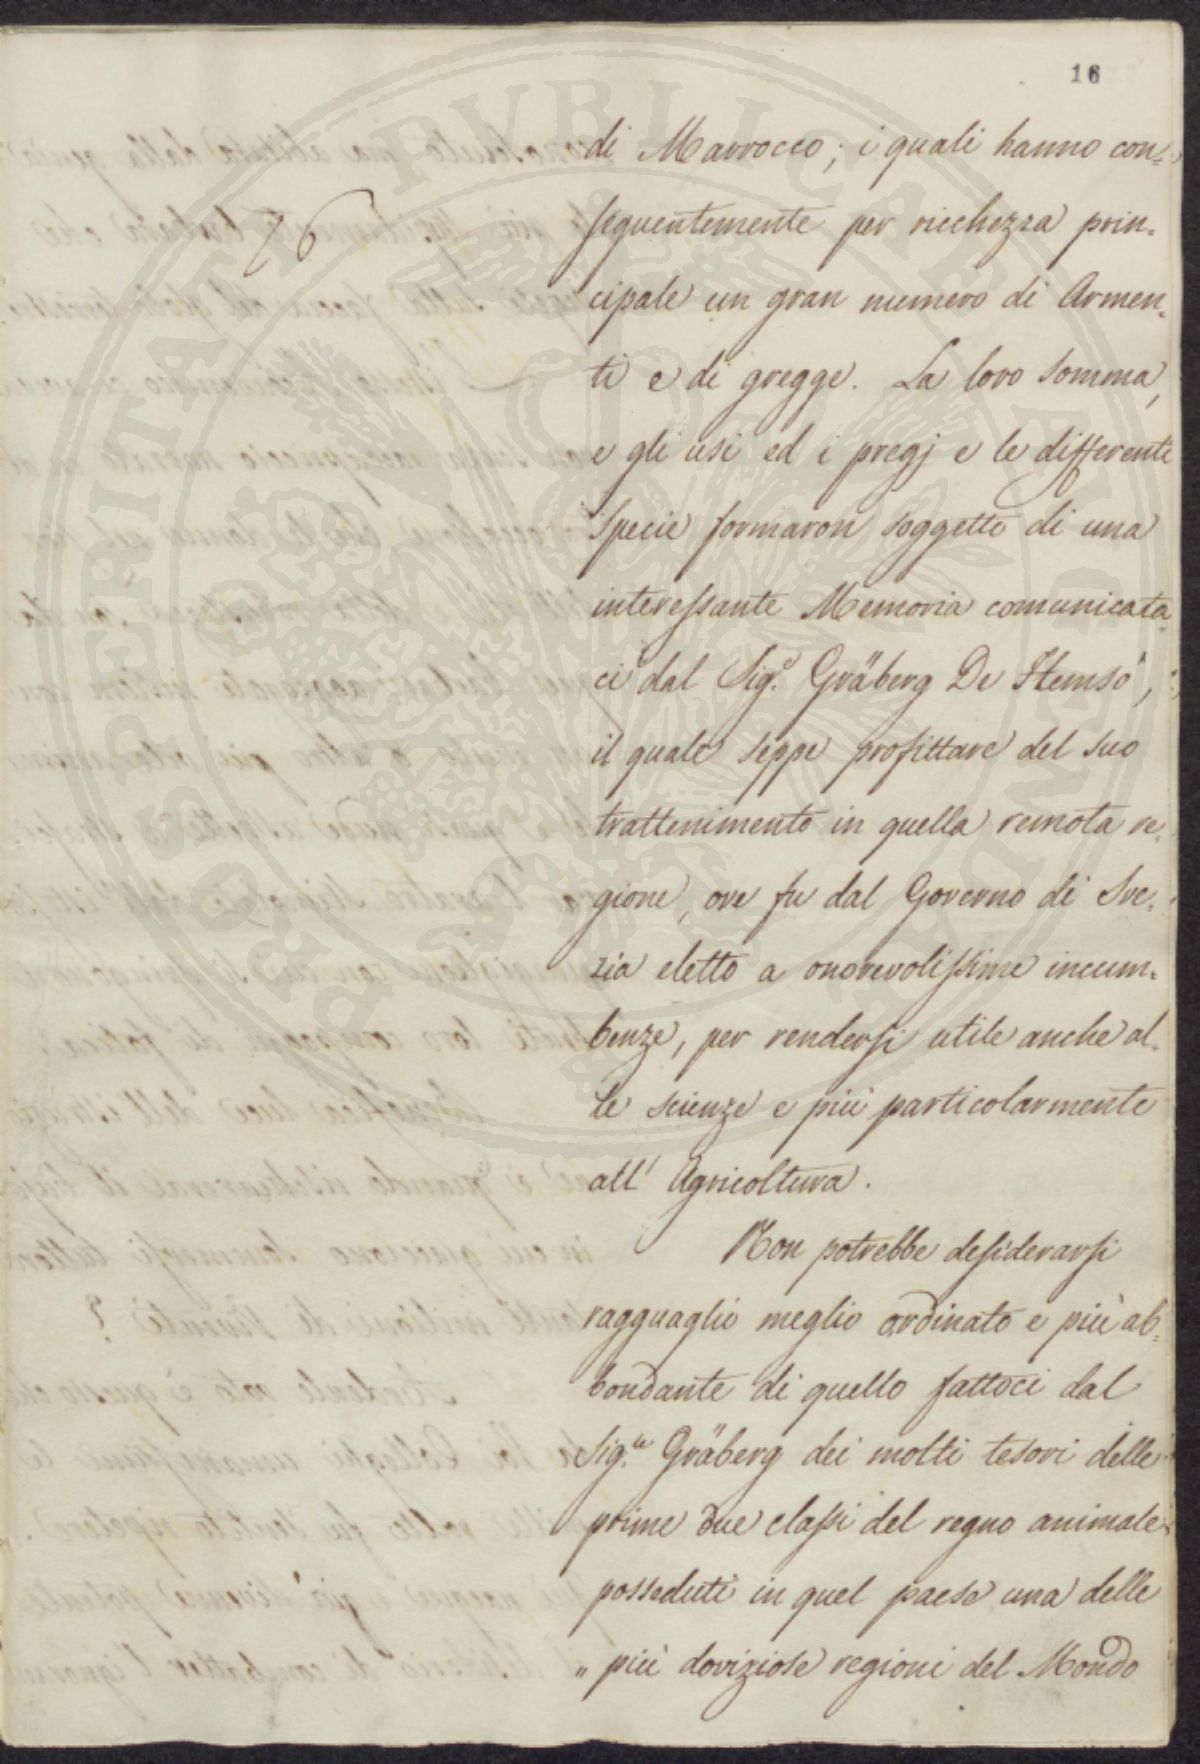 16
26
di Marrocco; i quali hanno con=
seguentemente per ricchezza prin=
cipale un gran numero di Armen=
ti e di gregge. La loro somma,
e gli usi ed i pregj e le differenti
specie formaron soggetto di una
interessante Memoria comunicata=
ci dal Sig.r Gräberg De Hemsö,
il quale seppe profittare del suo
trattenimento in quella remota re=
gione, ove fu dal Governo di Sve=
zia eletto a onorevolissime incum=
benze, per rendersi utile anche al=
le scienze e più particolarmente
all' Agricoltura.
Non potrebbe desiderarsi
ragguaglio meglio ordinato e più ab=
bondante di quello fattoci dal
Sig.re Gräberg dei molti tesori delle
prime due classi del regno animale
posseduti in quel paese una delle
" più doviziose regioni del Mondo
PROSPERITATI PUBLICAE AUGENDAE